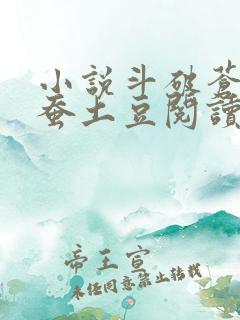 小說斗破蒼
蚕土豆閱讀
帝王宣
未经同意禁止转载